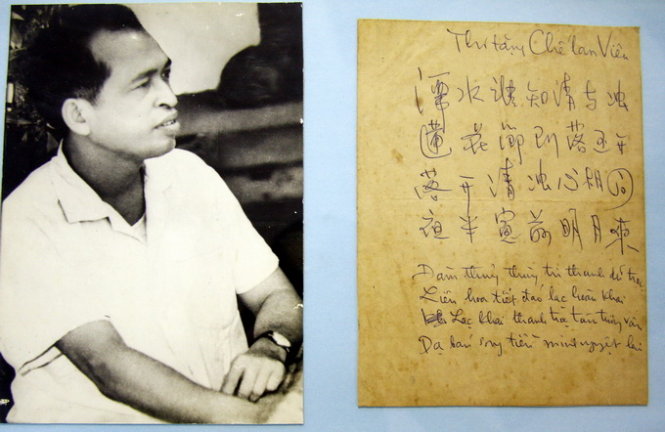 tặng Chế Lan Viên
潭水谁知清与浊
蓮花節到落还开
落开清浊心相问
夜半窓前明月來
Đàm thuỷ thuỳ tri thanh dữ trọc
Liên hoa tiết đáo lạc hoàn khai
Lạc khai thanh trọc tâm tương vấn
Dạ bán song tiền minh nguyệt lai